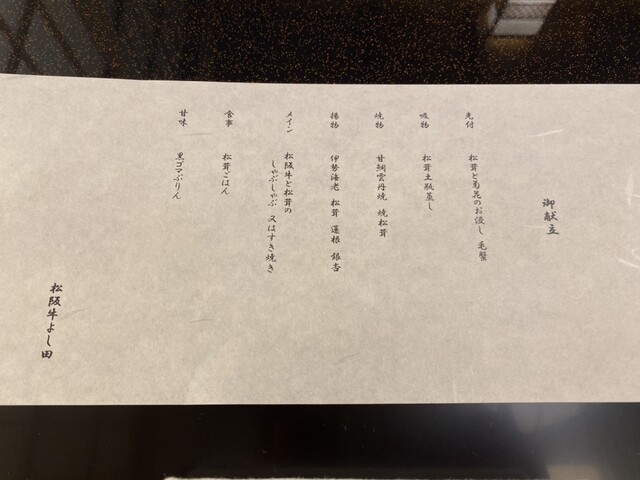 御献立
先付　松茸と菊花のお浸し 毛蟹
吸物　松茸土瓶蒸し
焼物　甘鯛雲丹焼 焼松茸
揚物　伊勢海老 松茸 蓮根 銀杏
メイン　松阪牛と松茸の
しゃぶしゃぶ 又はすき焼き
食事　松茸ごはん
甘味　黒ゴマぷりん
松阪牛よし田